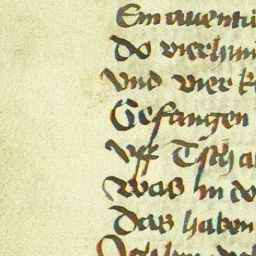 Ein auentu
Do vierhun
Vnd vier k
Gefangen
Vff Tscha
Was in do
Das haben